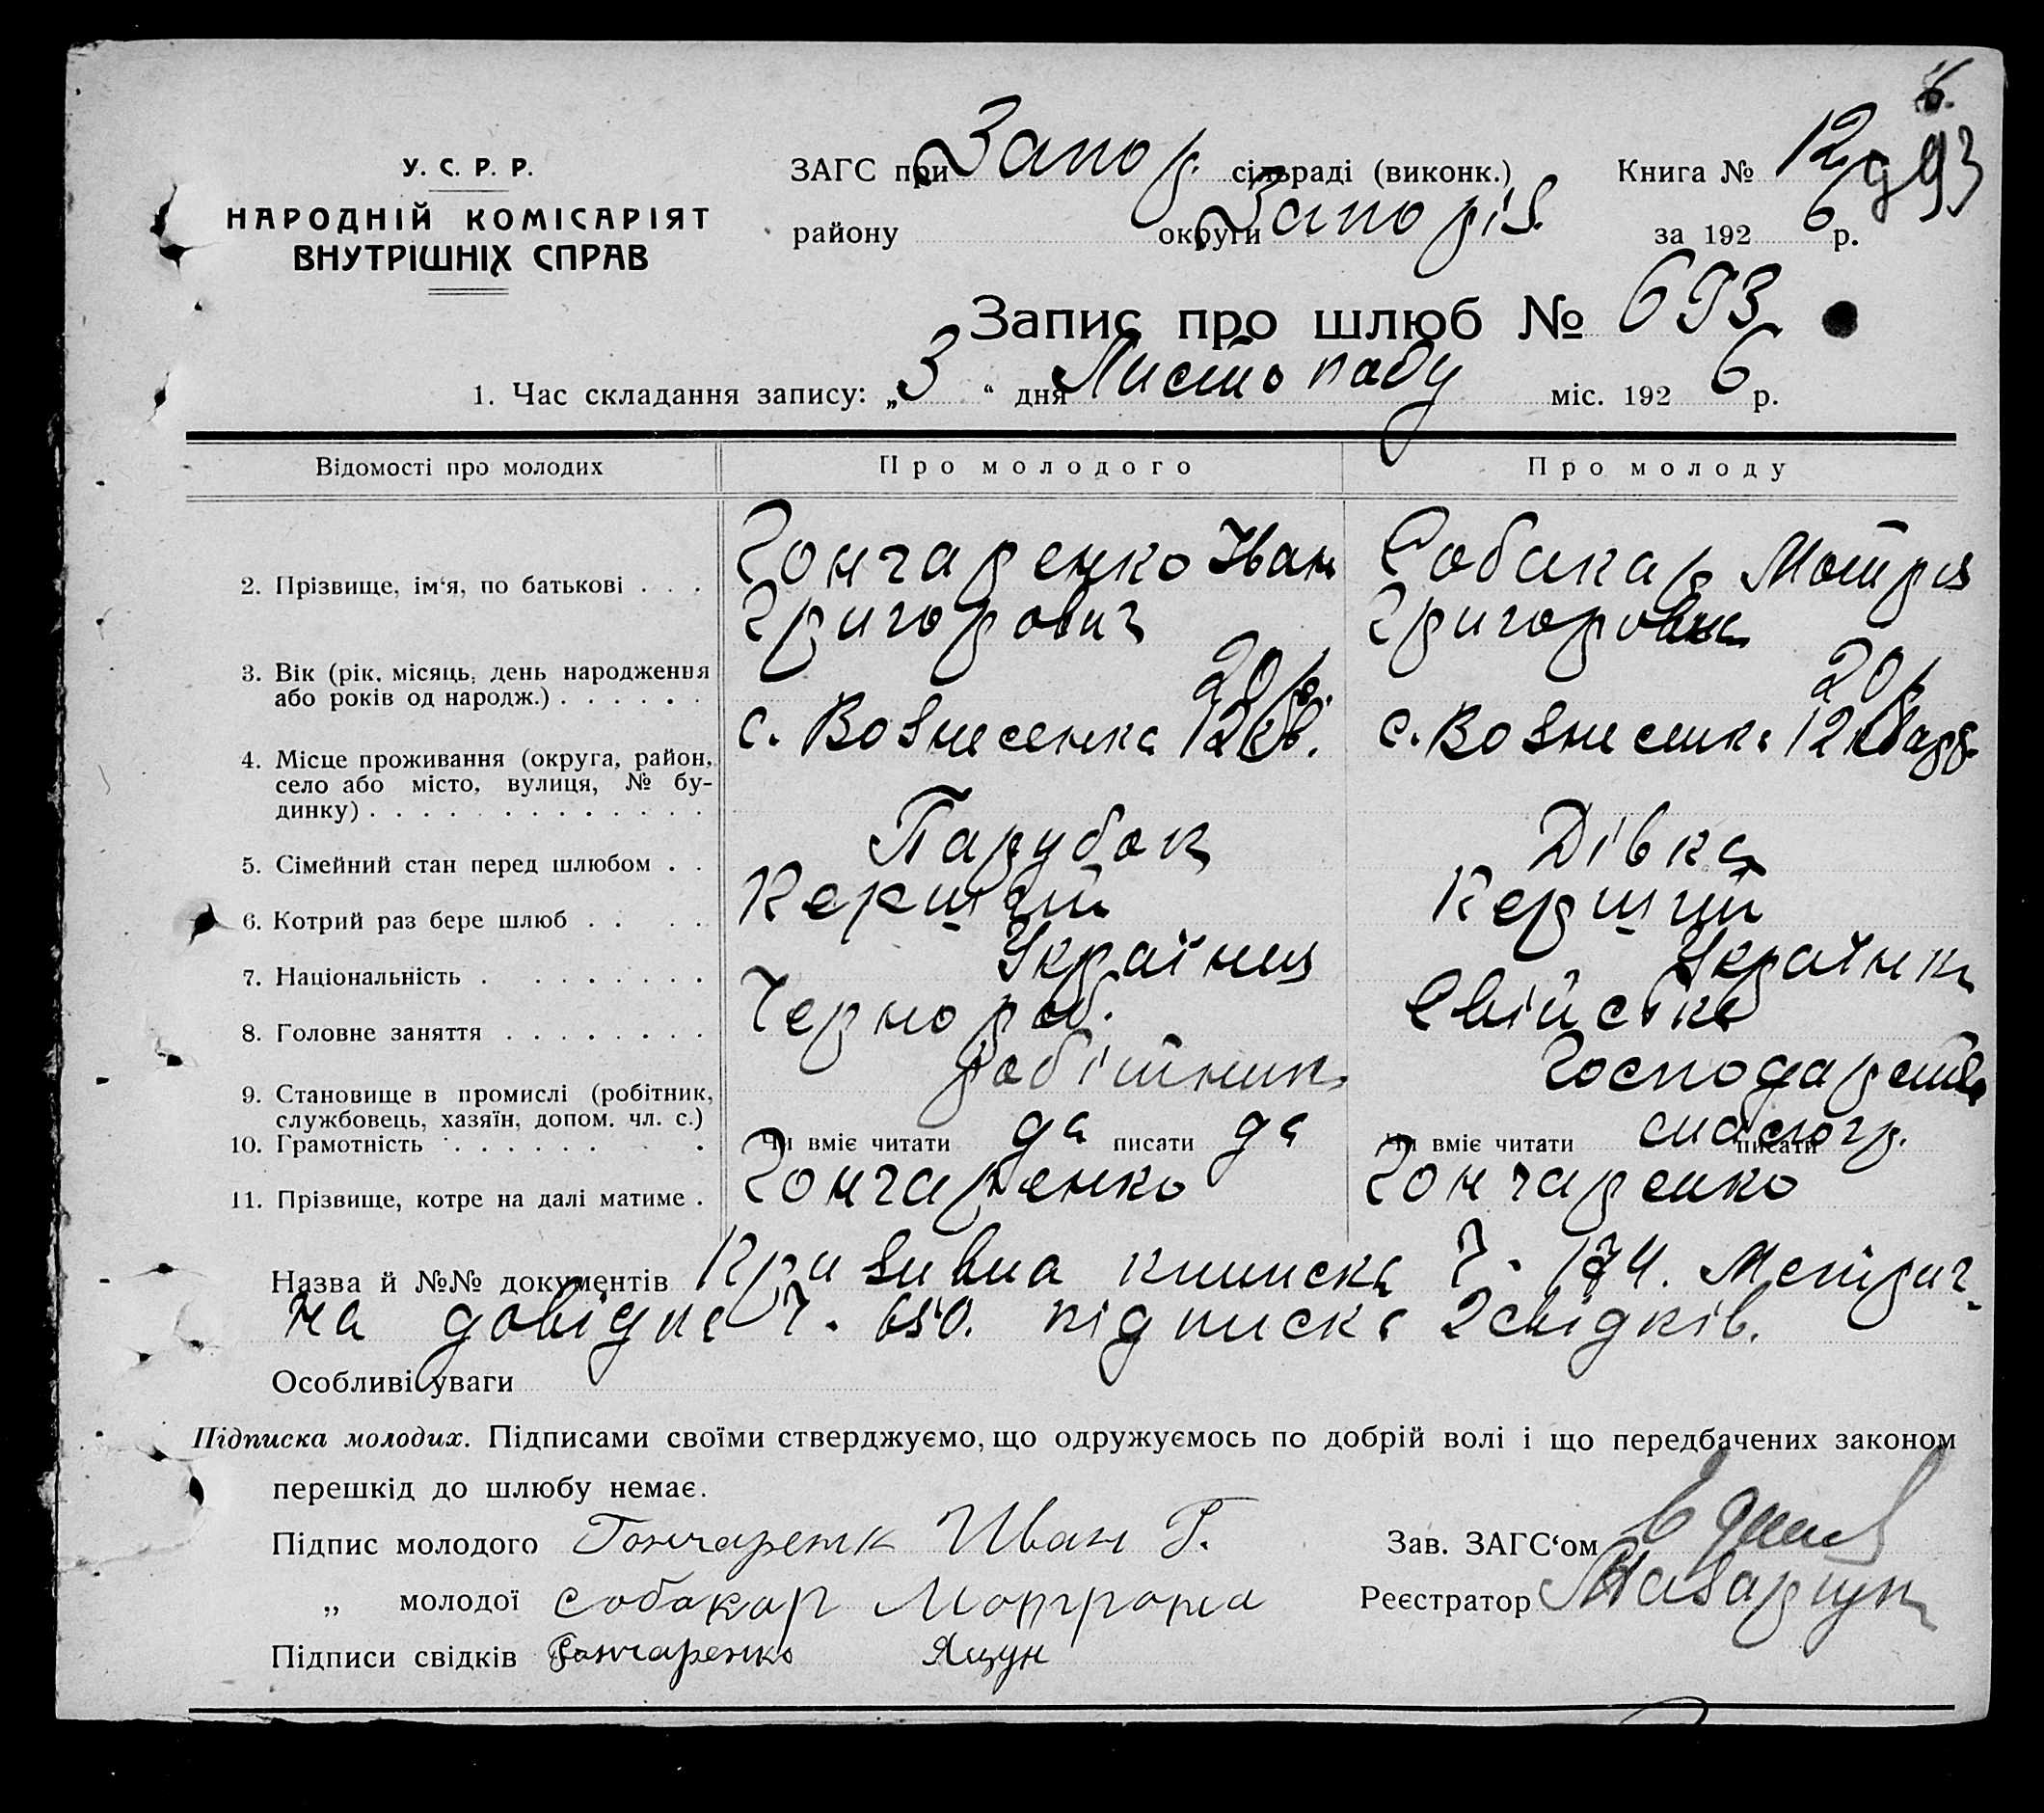 У. С. Р. Р.
НАРОДНІЙ КОМІСАРІЯТ
ВНУТРІШНІХ СПРАВ
ЗАГС при Запор. сільраді (виконк.) Книга № 12
району округи Запоріз. за 1926 р.
993
Запис про шлюб № 693
1. Час складання запису: „3“ дня Листопаду міс. 1926 р.
Відомості про молодих Про молодого Про молоду
2. Прізвище, ім‘я, по батькові . . . Гончаренко Іван Собакар Мотря
Григорович Григоровна
3. Вік (рік, місяць, день народження
або років од народж.) . . . . . . 20 р. 20 р
4. Місце проживання (округа, район,
село або місто, вулиця, № бу-
динку) . . . . . . . . . . . . . с. Вознесенка 12 кв. с. Вознесенка 12 квадр.
5. Сімейний стан перед шлюбом . . Парубок Дівка
6. Котрий раз бере шлюб . . . . Перший Перший
7. Національність . . . . . . . . Українец Українка
8. Головне заняття . . . . . . . . Чернороб. Свійське
9. Становище в промислі (робітник,
службовець, хазяїн, допом. чл. с.) робітник господарство
10. Грамотність . . . . . . . Чи вміє читати да писати да Чи вміє читати писати малогр.
11. Прізвище, котре на далі матиме . Гончаренко Гончаренко
Назва й №№ документів Призивна книжка ч. 174. Метрич
на довідка ч. 650. підписка 2 свідків.
Особливі уваги
Підписка молодих. Підписами своїми стверджуємо, що одружуємось по добрій волі і що передбачених законом
перешкід до шлюбу немає.
Підпис молодого Гончаренк Иван Г. Зав. ЗАГС‘ом
„ молодої Собакар Реєстратор
Підписи свідків Гончаренко Яцун